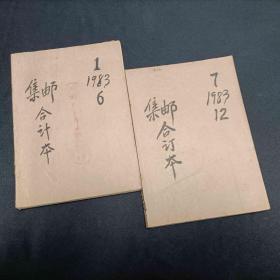 1
1983
6
集邮合计本
7
1983
12
集邮合订本